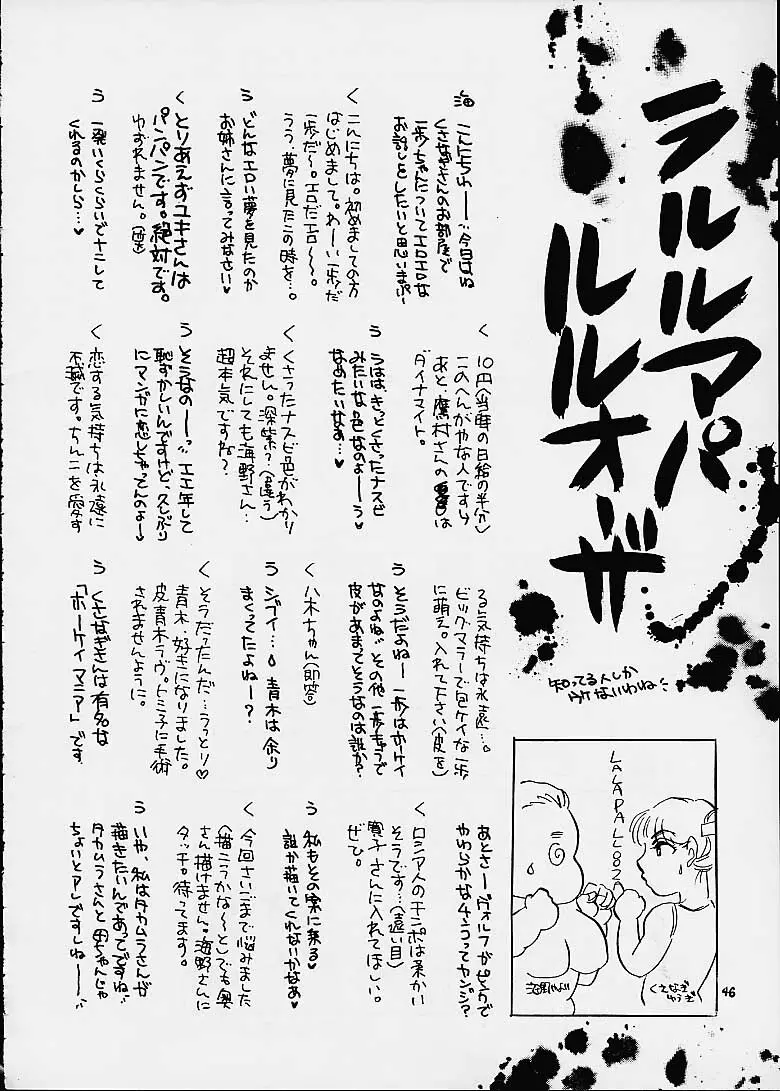 ラルルアパ
ルルオーザ
知ってる人しか
ウケないわね
海 こんにちわーー今日はね
くさなぎさんのお部屋で
一歩ちゃんについてエロエロな
お話しをしたいと思いまぷー
く こんにちは。初めましての方
はじめまして。わーい一歩だ
一歩だ〜。エロだエロ〜〜。
うう、夢に見たこの時を…。
う どんなエロい夢を見たのか
お姉さんに言ってみなさい♥
く とりあえずユキさんは
パンパンです。絶対です。
ゆずれません。
う 一発いくらくらいでナニして
くれるのかしら…♥
く 10円（当時の日給の半分）
このへんがやな人ですら
あと、鷹村さんの
ダイナマイト。
う うはは、きっとくさったナスビ
みたいな色なのよーーう
なめたいなぁ…♥
く くさったナスビ色がわかり
ません。深紫？（違う）
それにしても海野さん…
超本気ですね？
う そうなのーーっエエ年して
恥ずかしいんですけど、久しぶり
にマンガに恋しちゃってんのよー
く 恋する気持ちは永遠に
不滅です。ちんこを愛す
る気持ちは永遠…。
ビッグマラーで包ケイな一歩
に萌え。入れて下さい（皮を）
う そうだよねー一歩はホーケイ
なのよね。その他一歩もうで
皮があまってそうなのは誰か？
く 八木ちゃん（即答）
う シブイ…。青木は余り
まくってたよねー？
く そうだったんだ…うっとり♡
青木、好きになりました。
皮青木ラヴ。トミ子に手術
されませんように。
う くさなぎさんは有名な
「ホーケイマニア」です
あとさーヴォルフがピンクで
やわらかなチンコってカンジ？
く ロシア人のチンポは柔かい
そうです…（遠い目）
寛子さんに入れてほしい。
ぜひ。
う 私もその案に来る♥
誰か描いてくれないかなあ♥
く 今回さいごまで悩みました
（描こうかな〜と）でも奥
さん描けません。海野さんに
タッチ。待ってます。
う いや、私はタカムラさんが
描きたいんであってですね
タカムラさんと母ちゃんじゃ
ちょいとアレですしねーー
LALAPALOOZA
海野やよい
くさなぎ
ゆうぎ
46